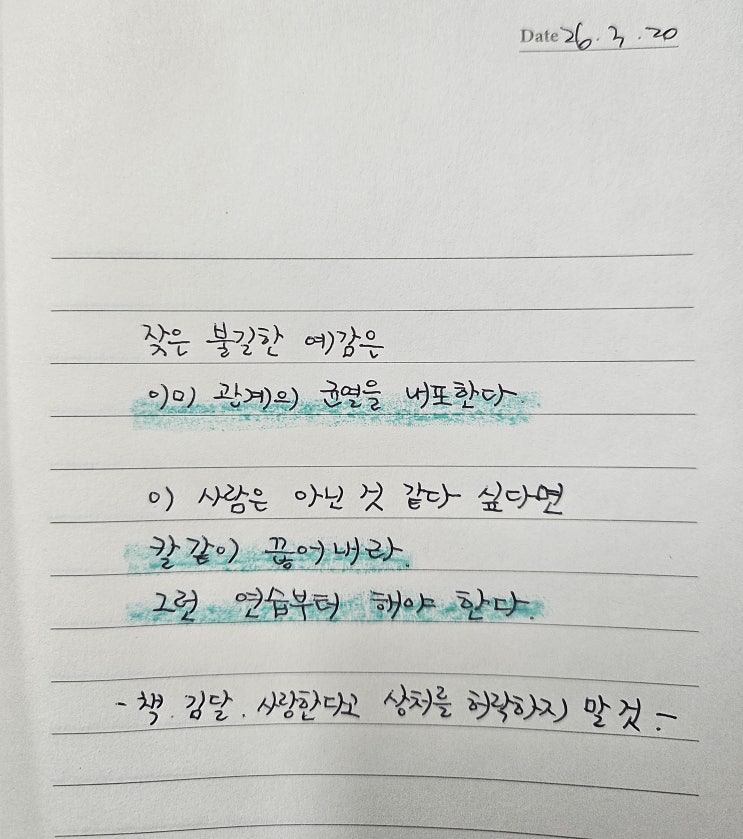 Date 26. 3. 20
잦은 불길한 예감은
이미 관계의 균열을 내포한다.
이 사람은 아닌 것 같다 싶다면
칼같이 끊어내라.
그런 연습부터 해야 한다.
- 책. 김달. 사랑한다고 상처를 허락하지 말 것 -